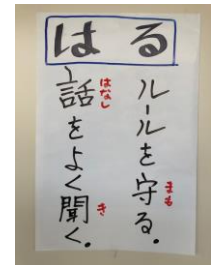 はる
ルールを守る。
まも
話をよく聞く。
はなし
き